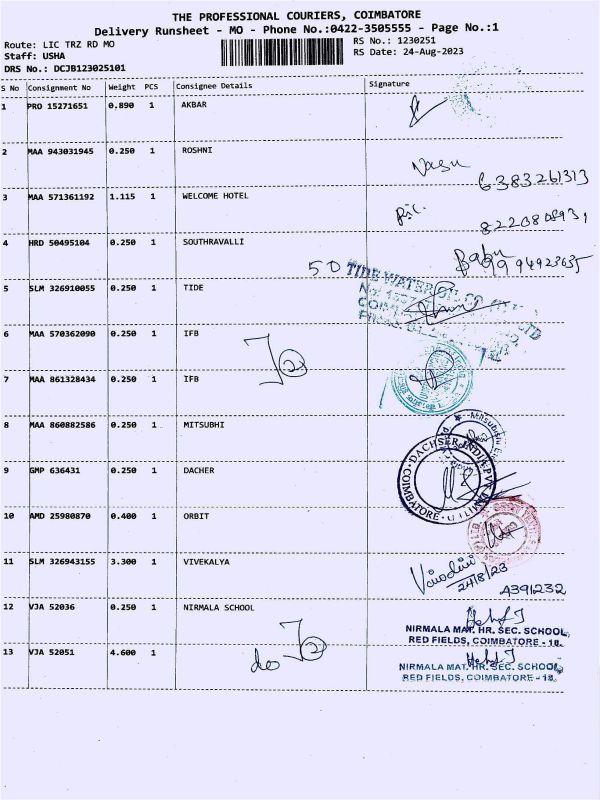 THE PROFESSIONAL COURIERS, COIMBATORE
Delivery Runsheet - MO - Phone No.:0422-3505555 - Page No.:1
Route: LIC TRZ RD MO RS No.: 1230251
Staff: USHA RS Date: 24-Aug-2023
DRS No.: DCJB123025101
S No Consignment No Weight PCS Consignee Details Signature
1 PRO 15271651 0.890 1 AKBAR
2 MAA 943031945 0.250 1 ROSHNI Vasu 6383261313
3 MAA 571361192 1.115 1 WELCOME HOTEL
4 HRD 50495104 0.250 1 SOUTHRAVALLI Babu
5 SLM 326910055 0.250 1 TIDE 50 TIDE WATER OIL CO
6 MAA 570362090 0.250 1 IFB
7 MAA 861328434 0.250 1 IFB
8 MAA 860882586 0.250 1 MITSUBHI Mitsubishi
9 GMP 636431 0.250 1 DACHER DACHSER INDIA PVT. LIMITED COIMBATORE
10 AMD 25980870 0.400 1 ORBIT
11 SLM 326943155 3.300 1 VIVEKALYA Vinodini
24/8/23 A391232
12 VJA 52036 0.250 1 NIRMALA SCHOOL
NIRMALA MAT. HR. SEC. SCHOOL,
RED FIELDS, COIMBATORE - 18.
13 VJA 52051 4.600 1 do
NIRMALA MAT. HR. SEC. SCHOOL,
RED FIELDS, COIMBATORE - 18.